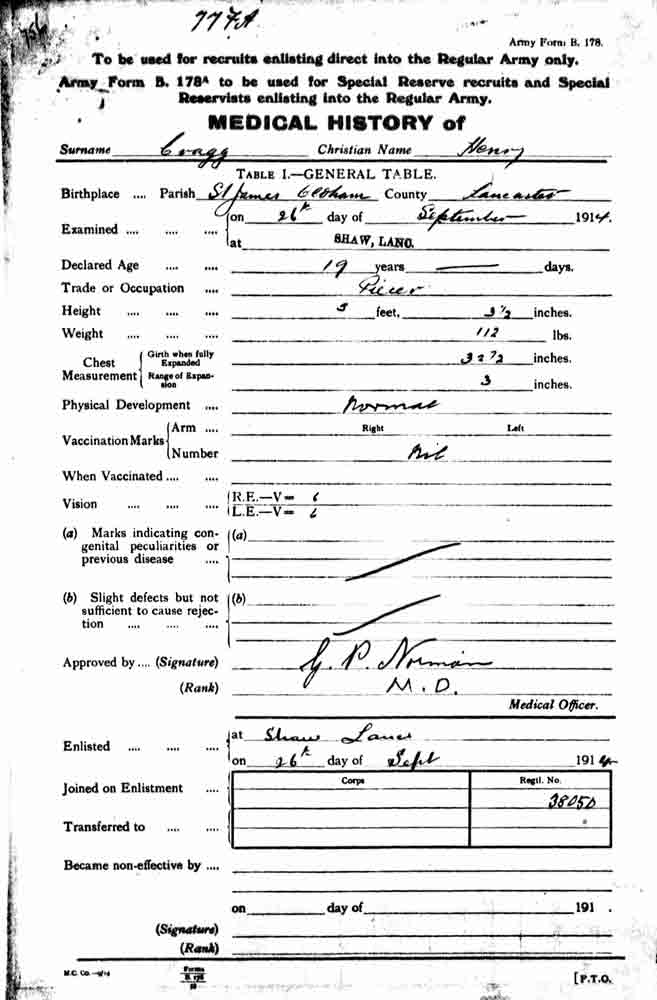 756
777A
Army Form B. 178.
To be used for recruits enlisting direct into the Regular Army only.
Army Form B. 178A to be used for Special Reserve recruits and Special
Reservists enlisting into the Regular Army.
MEDICAL HISTORY of
Surname Cragg Christian Name Henry
TABLE I.—GENERAL TABLE.
Birthplace .... Parish St James Oldham County Lancaster
Examined .... .... .... on 26th day of September 1914.
at SHAW, LANC.
Declared Age .... .... 19 years — days.
Trade or Occupation .... Piecer
Height .... .... .... 5 feet, 3½ inches.
Weight .... .... .... 112 lbs.
Chest Measurement Girth when fully Expanded 32½ inches.
Range of Expansion 3 inches.
Physical Development .... Normal
Vaccination Marks Arm .... Right Left
Number Nil
When Vaccinated .... ....
Vision .... .... .... R.E.—V= 6
L.E.—V= 6
(a) Marks indicating con- (a)
genital peculiarities or
previous disease ....
(b) Slight defects but not (b)
sufficient to cause rejec-
tion .... .... ....
Approved by .... (Signature) G. P. Norman
(Rank) M.D.
Medical Officer.
Enlisted .... .... .... at Shaw Lancs
on 26th day of Sept 1914
Corps Regtl. No.
Joined on Enlistment .... 38050
Transferred to .... ....
Became non-effective by ....
on day of 191 .
(Signature)
(Rank)
M.C. Co.
Forms
B. 178
[P.T.O.